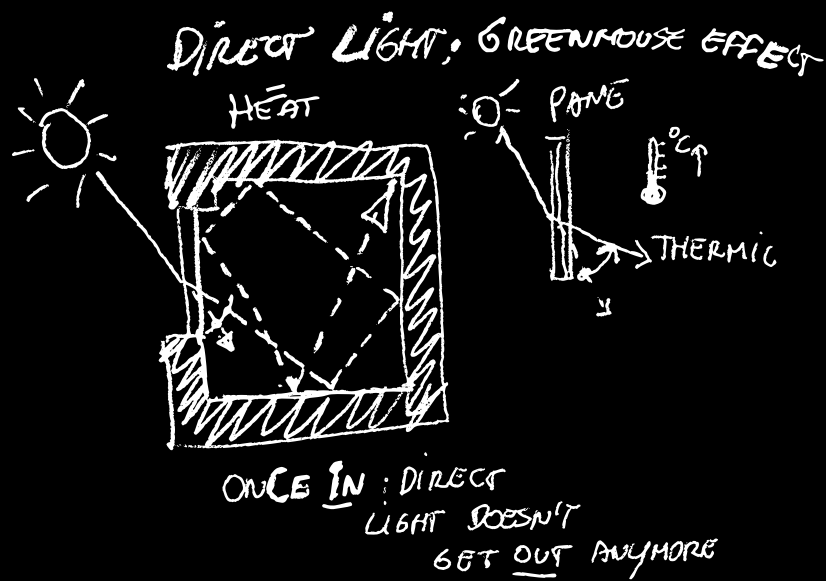 DIRECT LIGHT: GREENHOUSE EFFECT
HEAT
PANE
°C
THERMIC
y
ONCE IN : DIRECT
LIGHT DOESN'T
GET OUT ANYMORE